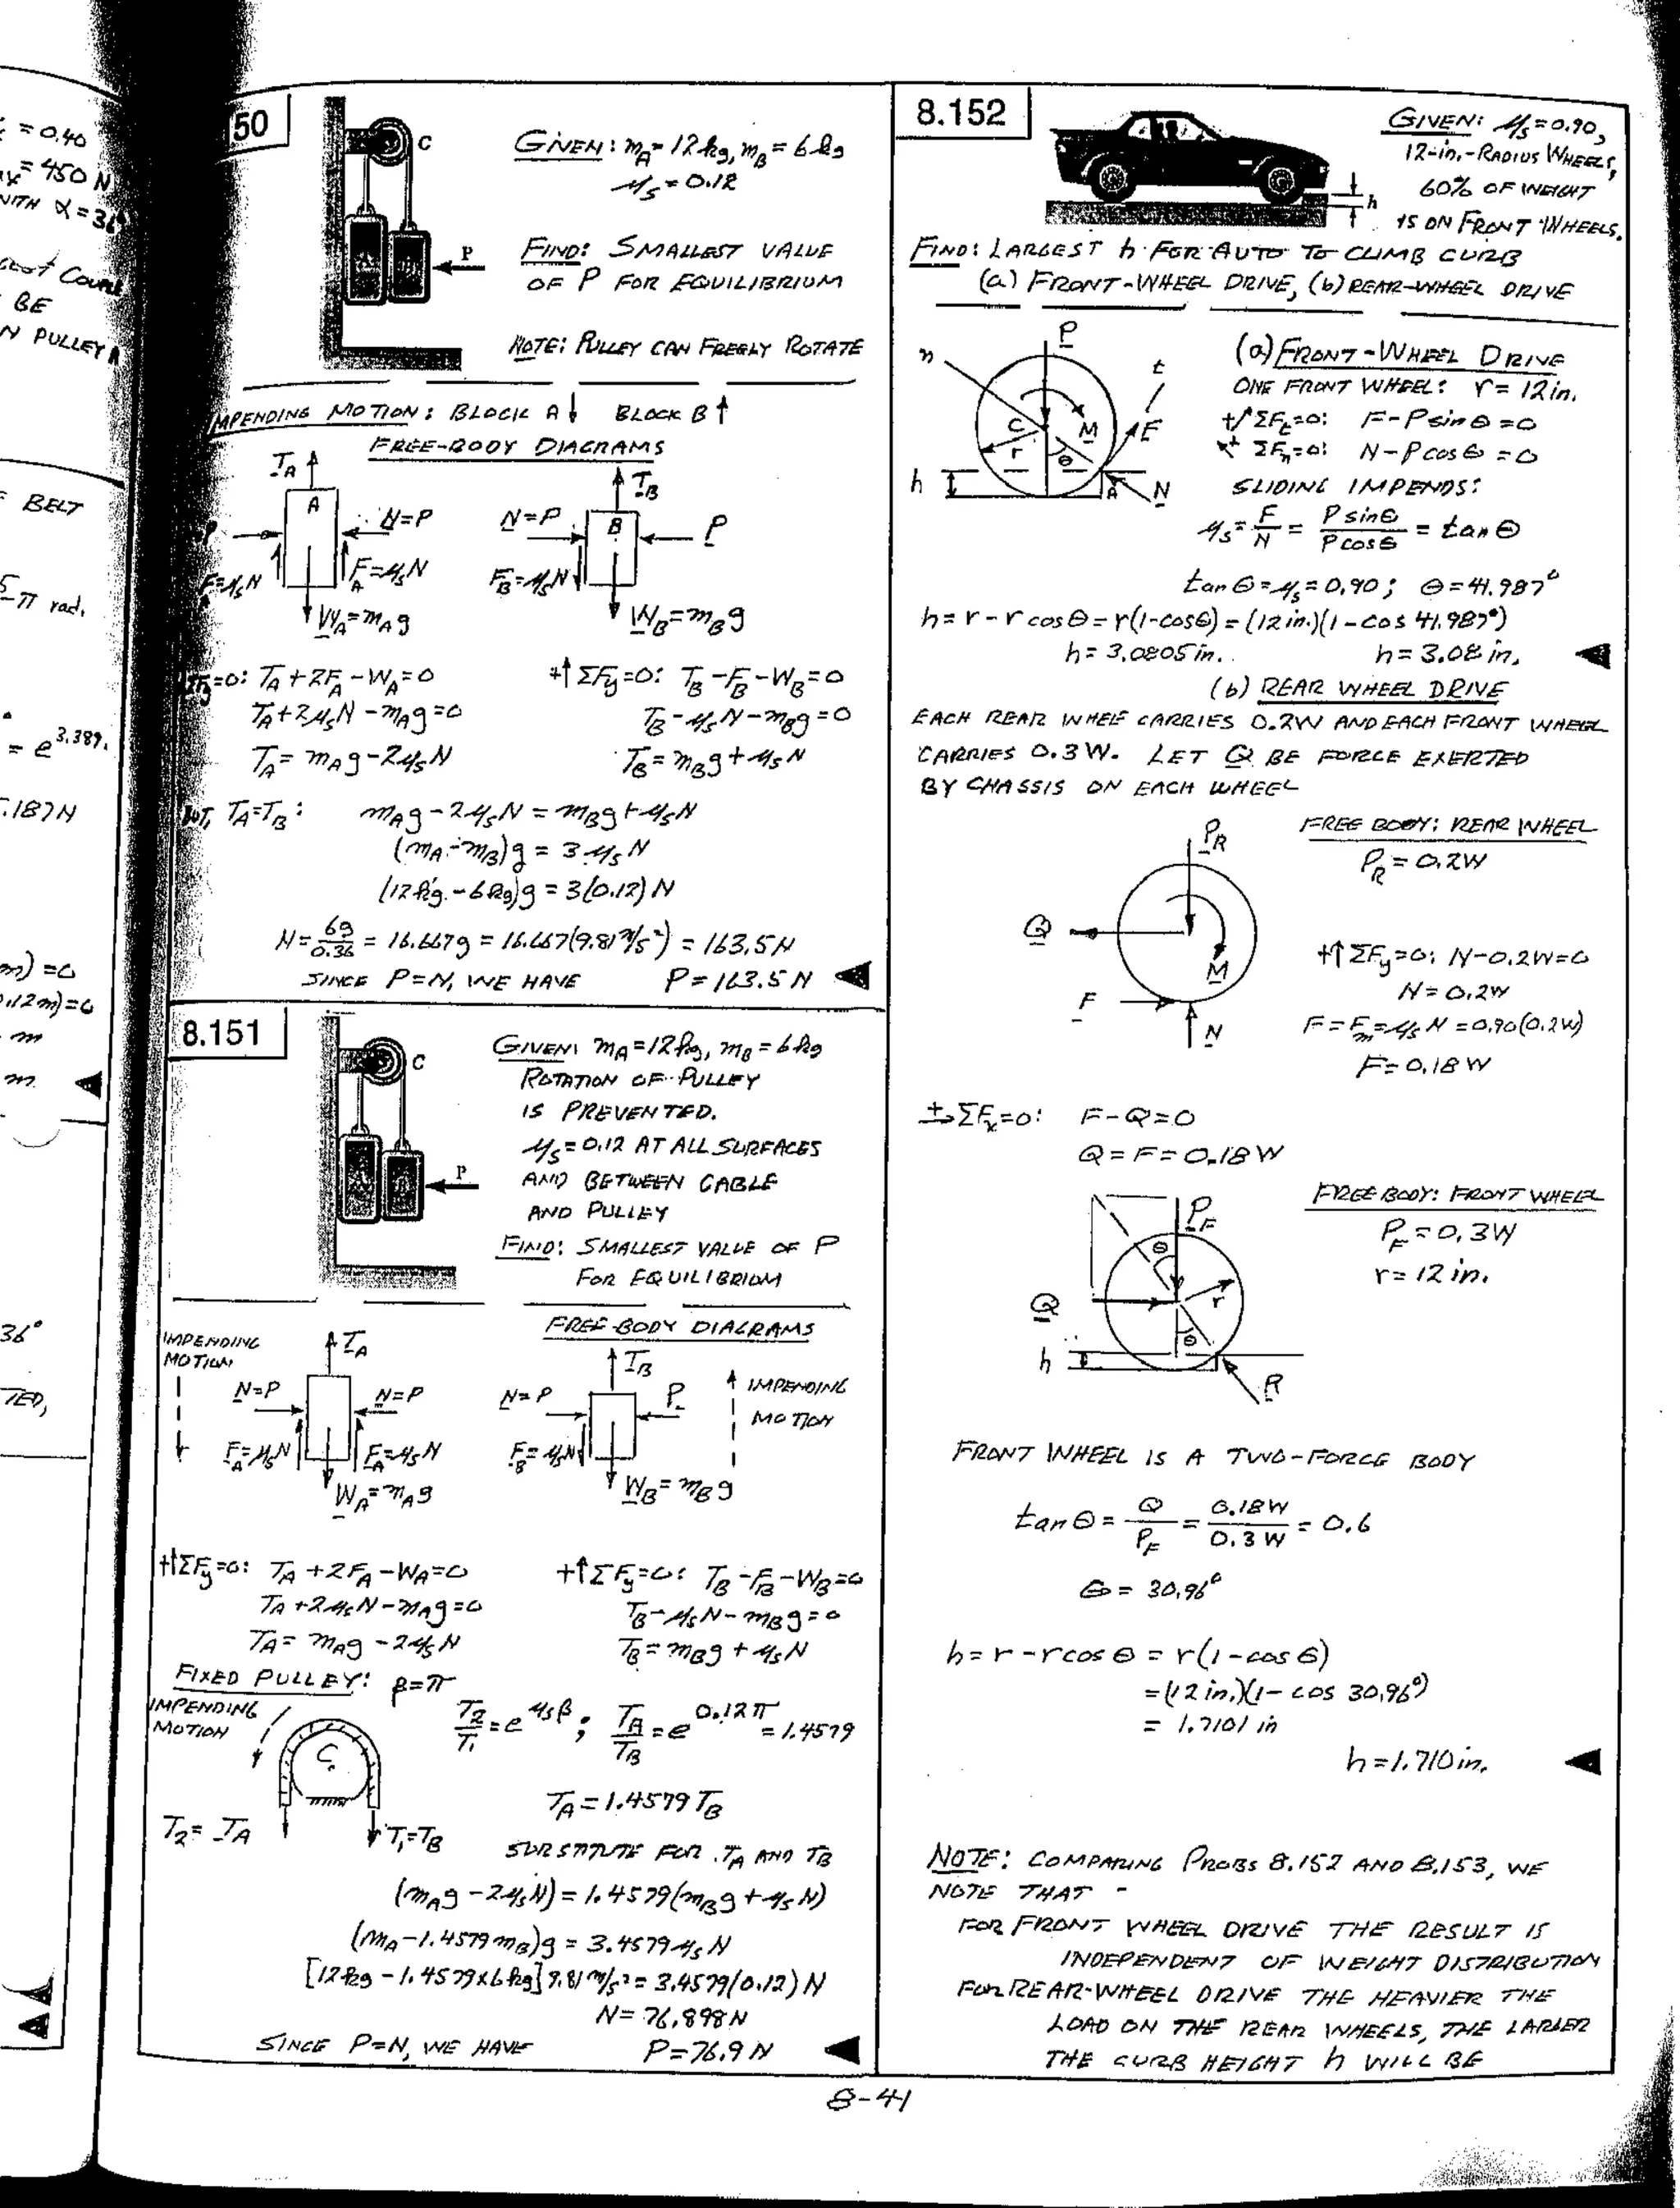 = 0.40
= 450 N
WITH α = 36
BE
N PULLEY A
BELT
π rad.
= e^3.389
.187 N
m) = 0
0.12m) = 0
m
m
36°
TED,
50
C
A
B
P
GIVEN: m_A = 12 kg, m_B = 6 kg
μ_s = 0.12
FIND: SMALLEST VALUE
OF P FOR EQUILIBRIUM
NOTE: PULLEY CAN FREELY ROTATE
IMPENDING MOTION: BLOCK A ↓ BLOCK B ↑
FREE-BODY DIAGRAMS
T_A
A
P
N=P
F_A=μ_sN
F_A=μ_sN
W_A=m_A g
T_B
N=P
B
P
F_B=μ_sN
W_B=m_B g
ΣF_y=0: T_A+2F_A-W_A=0
T_A+2μ_sN-m_A g=0
T_A= m_A g-2μ_sN
+↑ΣF_y=0: T_B-F_B-W_B=0
T_B-μ_sN-m_B g=0
T_B=m_B g+μ_sN
BUT, T_A=T_B: m_A g-2μ_sN = m_B g+μ_sN
(m_A-m_B)g = 3μ_sN
(12 kg-6 kg)g = 3(0.12)N
N= 6g/0.36 = 16.667g = 16.667(9.81 m/s²) = 163.5 N
SINCE P=N, WE HAVE P=163.5 N ◀
8.151
C
A
B
P
GIVEN: m_A=12 kg, m_B=6 kg
ROTATION OF PULLEY
IS PREVENTED.
μ_s=0.12 AT ALL SURFACES
AND BETWEEN CABLE
AND PULLEY
FIND: SMALLEST VALUE OF P
FOR EQUILIBRIUM
FREE-BODY DIAGRAMS
IMPENDING
MOTION
T_A
N=P
N=P
F_A=μ_sN
F_A=μ_sN
W_A=m_A g
T_B
N=P
P
F_B=μ_sN
W_B=m_B g
IMPENDING
MOTION
+↑ΣF_y=0: T_A+2F_A-W_A=0
T_A+2μ_sN-m_A g=0
T_A= m_A g-2μ_sN
+↑ΣF_y=0: T_B-F_B-W_B=0
T_B-μ_sN-m_B g=0
T_B=m_B g+μ_sN
FIXED PULLEY: β=π
IMPENDING
MOTION
C
T_2= T_A
T_1=T_B
T_2/T_1=e^μ_sβ; T_A/T_B=e^0.12π=1.4579
T_A=1.4579 T_B
SUBSTITUTE FOR T_A AND T_B
(m_A g-2μ_sN)=1.4579(m_B g+μ_sN)
(m_A-1.4579 m_B)g = 3.4579 μ_sN
[12 kg-1.4579×6 kg]9.81 m/s²=3.4579(0.12)N
N=76.898 N
SINCE P=N, WE HAVE P=76.9 N ◀
8.152
h
GIVEN: μ_s=0.90,
12-in.-RADIUS WHEELS,
60% OF WEIGHT
IS ON FRONT WHEELS.
FIND: LARGEST h FOR AUTO TO CLIMB CURB
(a) FRONT-WHEEL DRIVE, (b) REAR-WHEEL DRIVE
n
P
t
C
r
M
F
θ
h
A
N
(a) FRONT-WHEEL DRIVE
ONE FRONT WHEEL: r=12 in.
+↗ΣF_t=0: F-P sin θ=0
↖+ ΣF_n=0: N-P cos θ=0
SLIDING IMPENDS:
μ_s= F/N = P sin θ/P cos θ = tan θ
tan θ=μ_s=0.90; θ=41.987°
h=r-r cos θ=r(1-cos θ)=(12 in.)(1-cos 41.987°)
h=3.0805 in. h=3.08 in. ◀
(b) REAR WHEEL DRIVE
EACH REAR WHEEL CARRIES 0.2W AND EACH FRONT WHEEL
CARRIES 0.3W. LET Q BE FORCE EXERTED
BY CHASSIS ON EACH WHEEL
P_R
Q
M
F
N
FREE BODY: REAR WHEEL
P_R=0.2W
+↑ΣF_y=0: N-0.2W=0
N=0.2W
F=F_m=μ_sN=0.90(0.2W)
F=0.18W
+→ΣF_x=0: F-Q=0
Q=F=0.18W
P_F
θ
Q
r
θ
h
R
FREE BODY: FRONT WHEEL
P_F=0.3W
r=12 in.
FRONT WHEEL IS A TWO-FORCE BODY
tan θ= Q/P_F = 0.18W/0.3W = 0.6
θ=30.96°
h=r-r cos θ = r(1-cos θ)
=(12 in.)(1-cos 30.96°)
= 1.7101 in
h=1.710 in. ◀
NOTE: COMPARING PROBS 8.152 AND 8.153, WE
NOTE THAT -
FOR FRONT WHEEL DRIVE THE RESULT IS
INDEPENDENT OF WEIGHT DISTRIBUTION
FOR REAR-WHEEL DRIVE THE HEAVIER THE
LOAD ON THE REAR WHEELS, THE LARGER
THE CURB HEIGHT h WILL BE
8-41